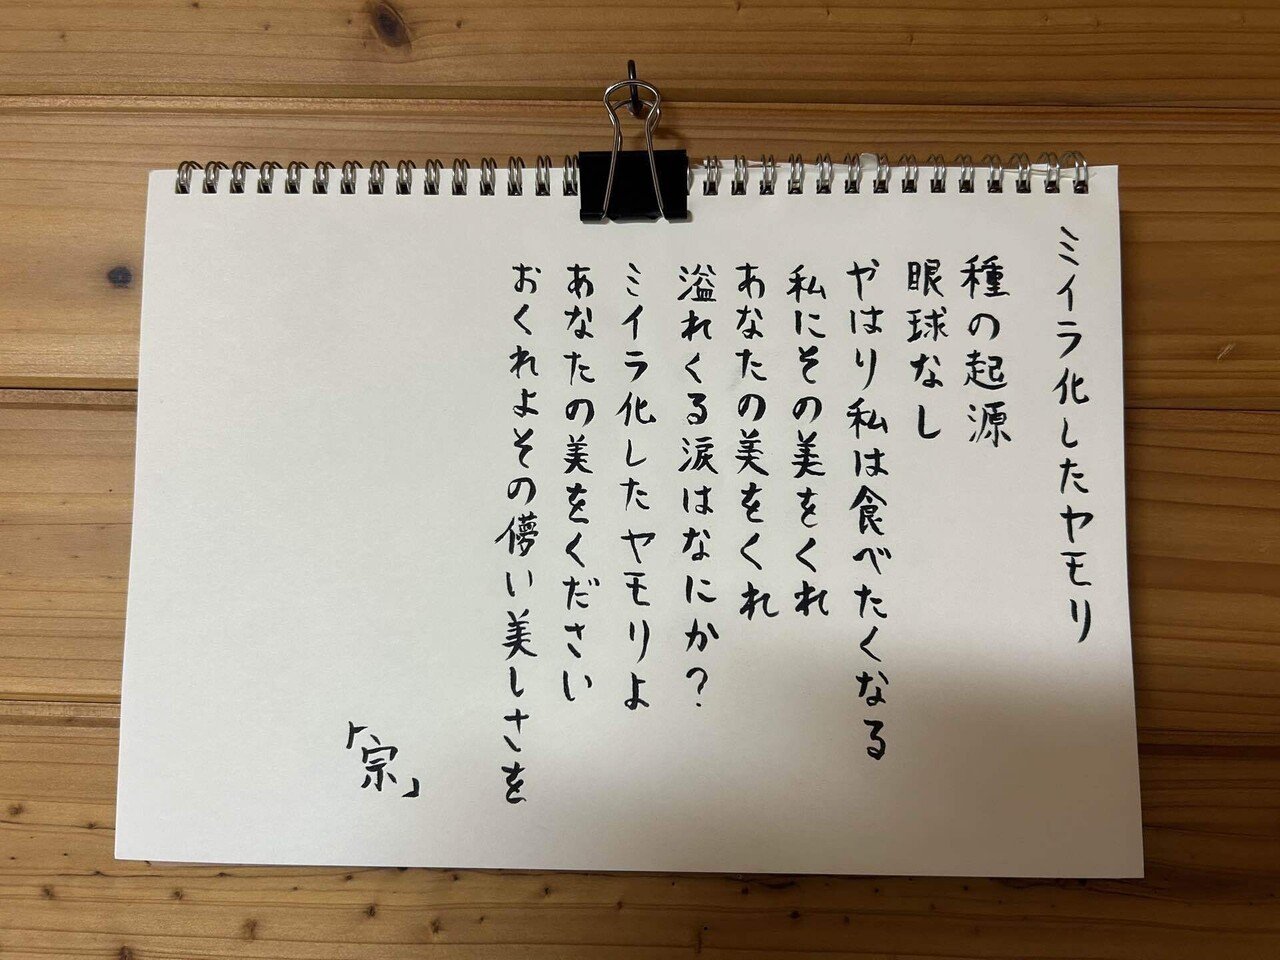 ミイラ化したヤモリ
種の起源
眼球なし
やはり私は食べたくなる
私にその美をくれ
あなたの美をくれ
溢れくる涙はなにか？
ミイラ化したヤモリよ
あなたの美をください
おくれよその儚い美しさを
「宗」